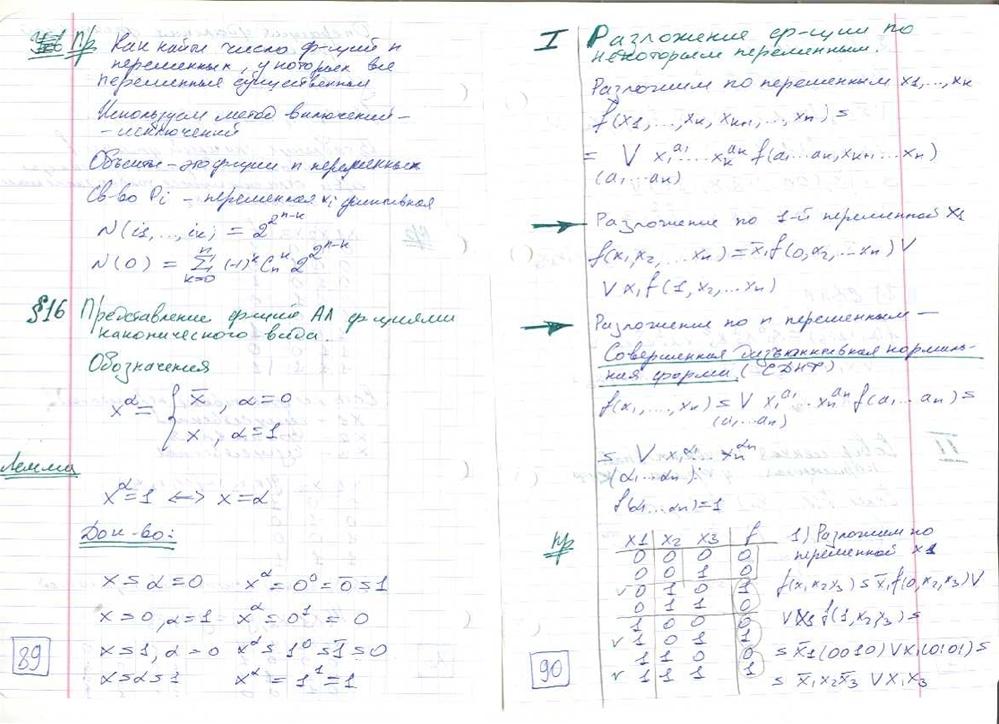 Пр Как найти число ф-ций n
переменных, у которых все
переменные существенные
Используем метод включений-
-исключений
Объекты - это ф-ции n переменных
Св-во Pi - переменная xi фиктивная
N(i1,...,ik) = 2^2^{n-k}
N(0) = Σ_{k=0}^{n} (-1)^k C_n^k 2^2^{n-k}
§16 Представление ф-ций АЛ ф-циями
канонического вида.
Обозначения
x^α = { x̄, α=0
x, α=1
Лемма
x^α=1 <-> x=α
Док-во:
x=α=0 x^α=0^0=0̄=1
x=0, α=1 x^α=0^1=0
x=1, α=0 x^α=1^0=1̄=0
x=α=1 x^α=1^1=1
89
I Разложение ф-ции по
некоторым переменным.
Разложим по переменным x1,...,xk
f(x1,...,xk,xk+1,...,xn) =
= V x1^a1...xk^ak f(a1...ak,xk+1...xn)
(a1...ak)
→ Разложение по 1-й переменной x1
f(x1,x2,...xn)=x̄1f(0,x2,...xn) V
V x1f(1,x2,...xn)
→ Разложение по n переменным -
Совершенная дизъюнктивная нормаль-
ная форма (СДНФ)
f(x1,...,xn) = V x1^a1...xn^an f(a1...an) =
(a1...an)
= V x1^α1...xn^αn
(α1...αn):
f(α1...αn)=1
Пр
x1 x2 x3 f
0 0 0 0
0 0 1 0
v 0 1 0 1
0 1 1 0
1 0 0 0
v 1 0 1 1
1 1 0 0
v 1 1 1 1
1) Разложим по
переменной x1
f(x1,x2x3) = x̄1f(0,x2,x3) V
V x1 f(1,x2,x3) =
= x̄1(0010) V x1(0101) =
= x̄1x2x̄3 V x1x3
90